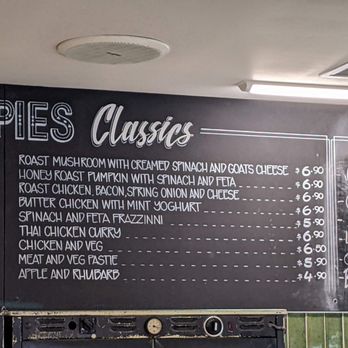 PIES Classics
ROAST MUSHROOM WITH CREAMED SPINACH AND GOATS CHEESE $6.90
HONEY ROAST PUMPKIN WITH SPINACH AND FETA $6.90
ROAST CHICKEN, BACON, SPRING ONION AND CHEESE $6.90
BUTTER CHICKEN WITH MINT YOGHURT $6.90
SPINACH AND FETA FRAZZINNI $5.90
THAI CHICKEN CURRY $6.90
CHICKEN AND VEG $6.50
MEAT AND VEG PASTIE $5.90
APPLE AND RHUBARB $4.90